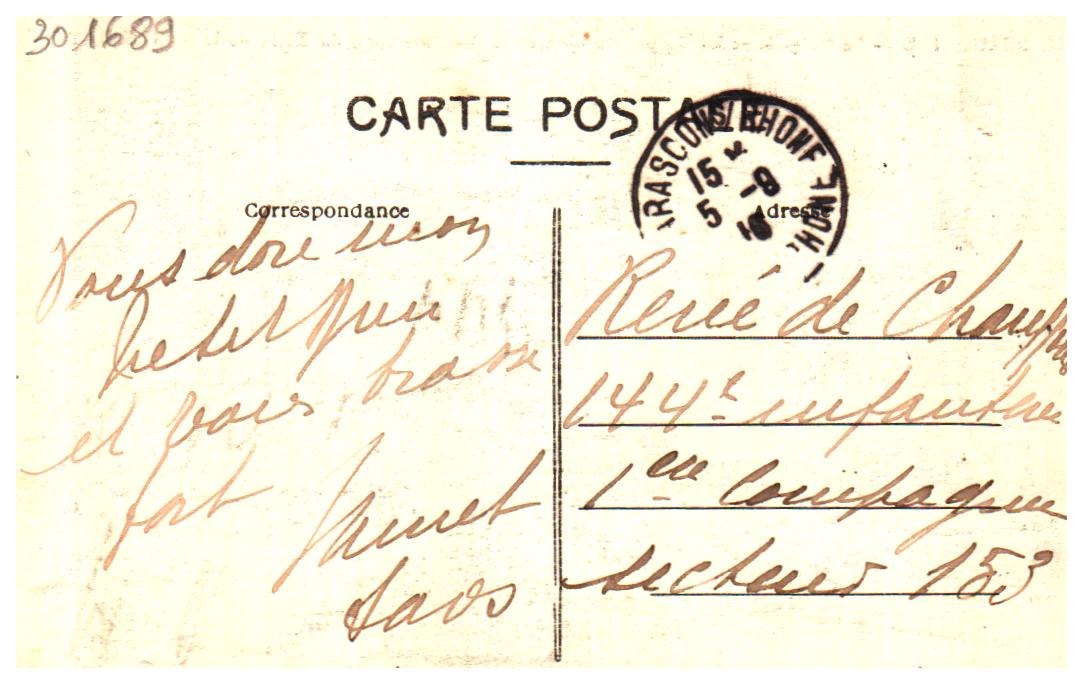 301689
CARTE POSTALE
TARASCON S/ RHONE
15 * 5 -9 16
RHONE
Correspondance
Adresse
Vous dore mon
petit
et vous brasse
fort
René de
144e infanterie
1ere Compagnie
secteur 153